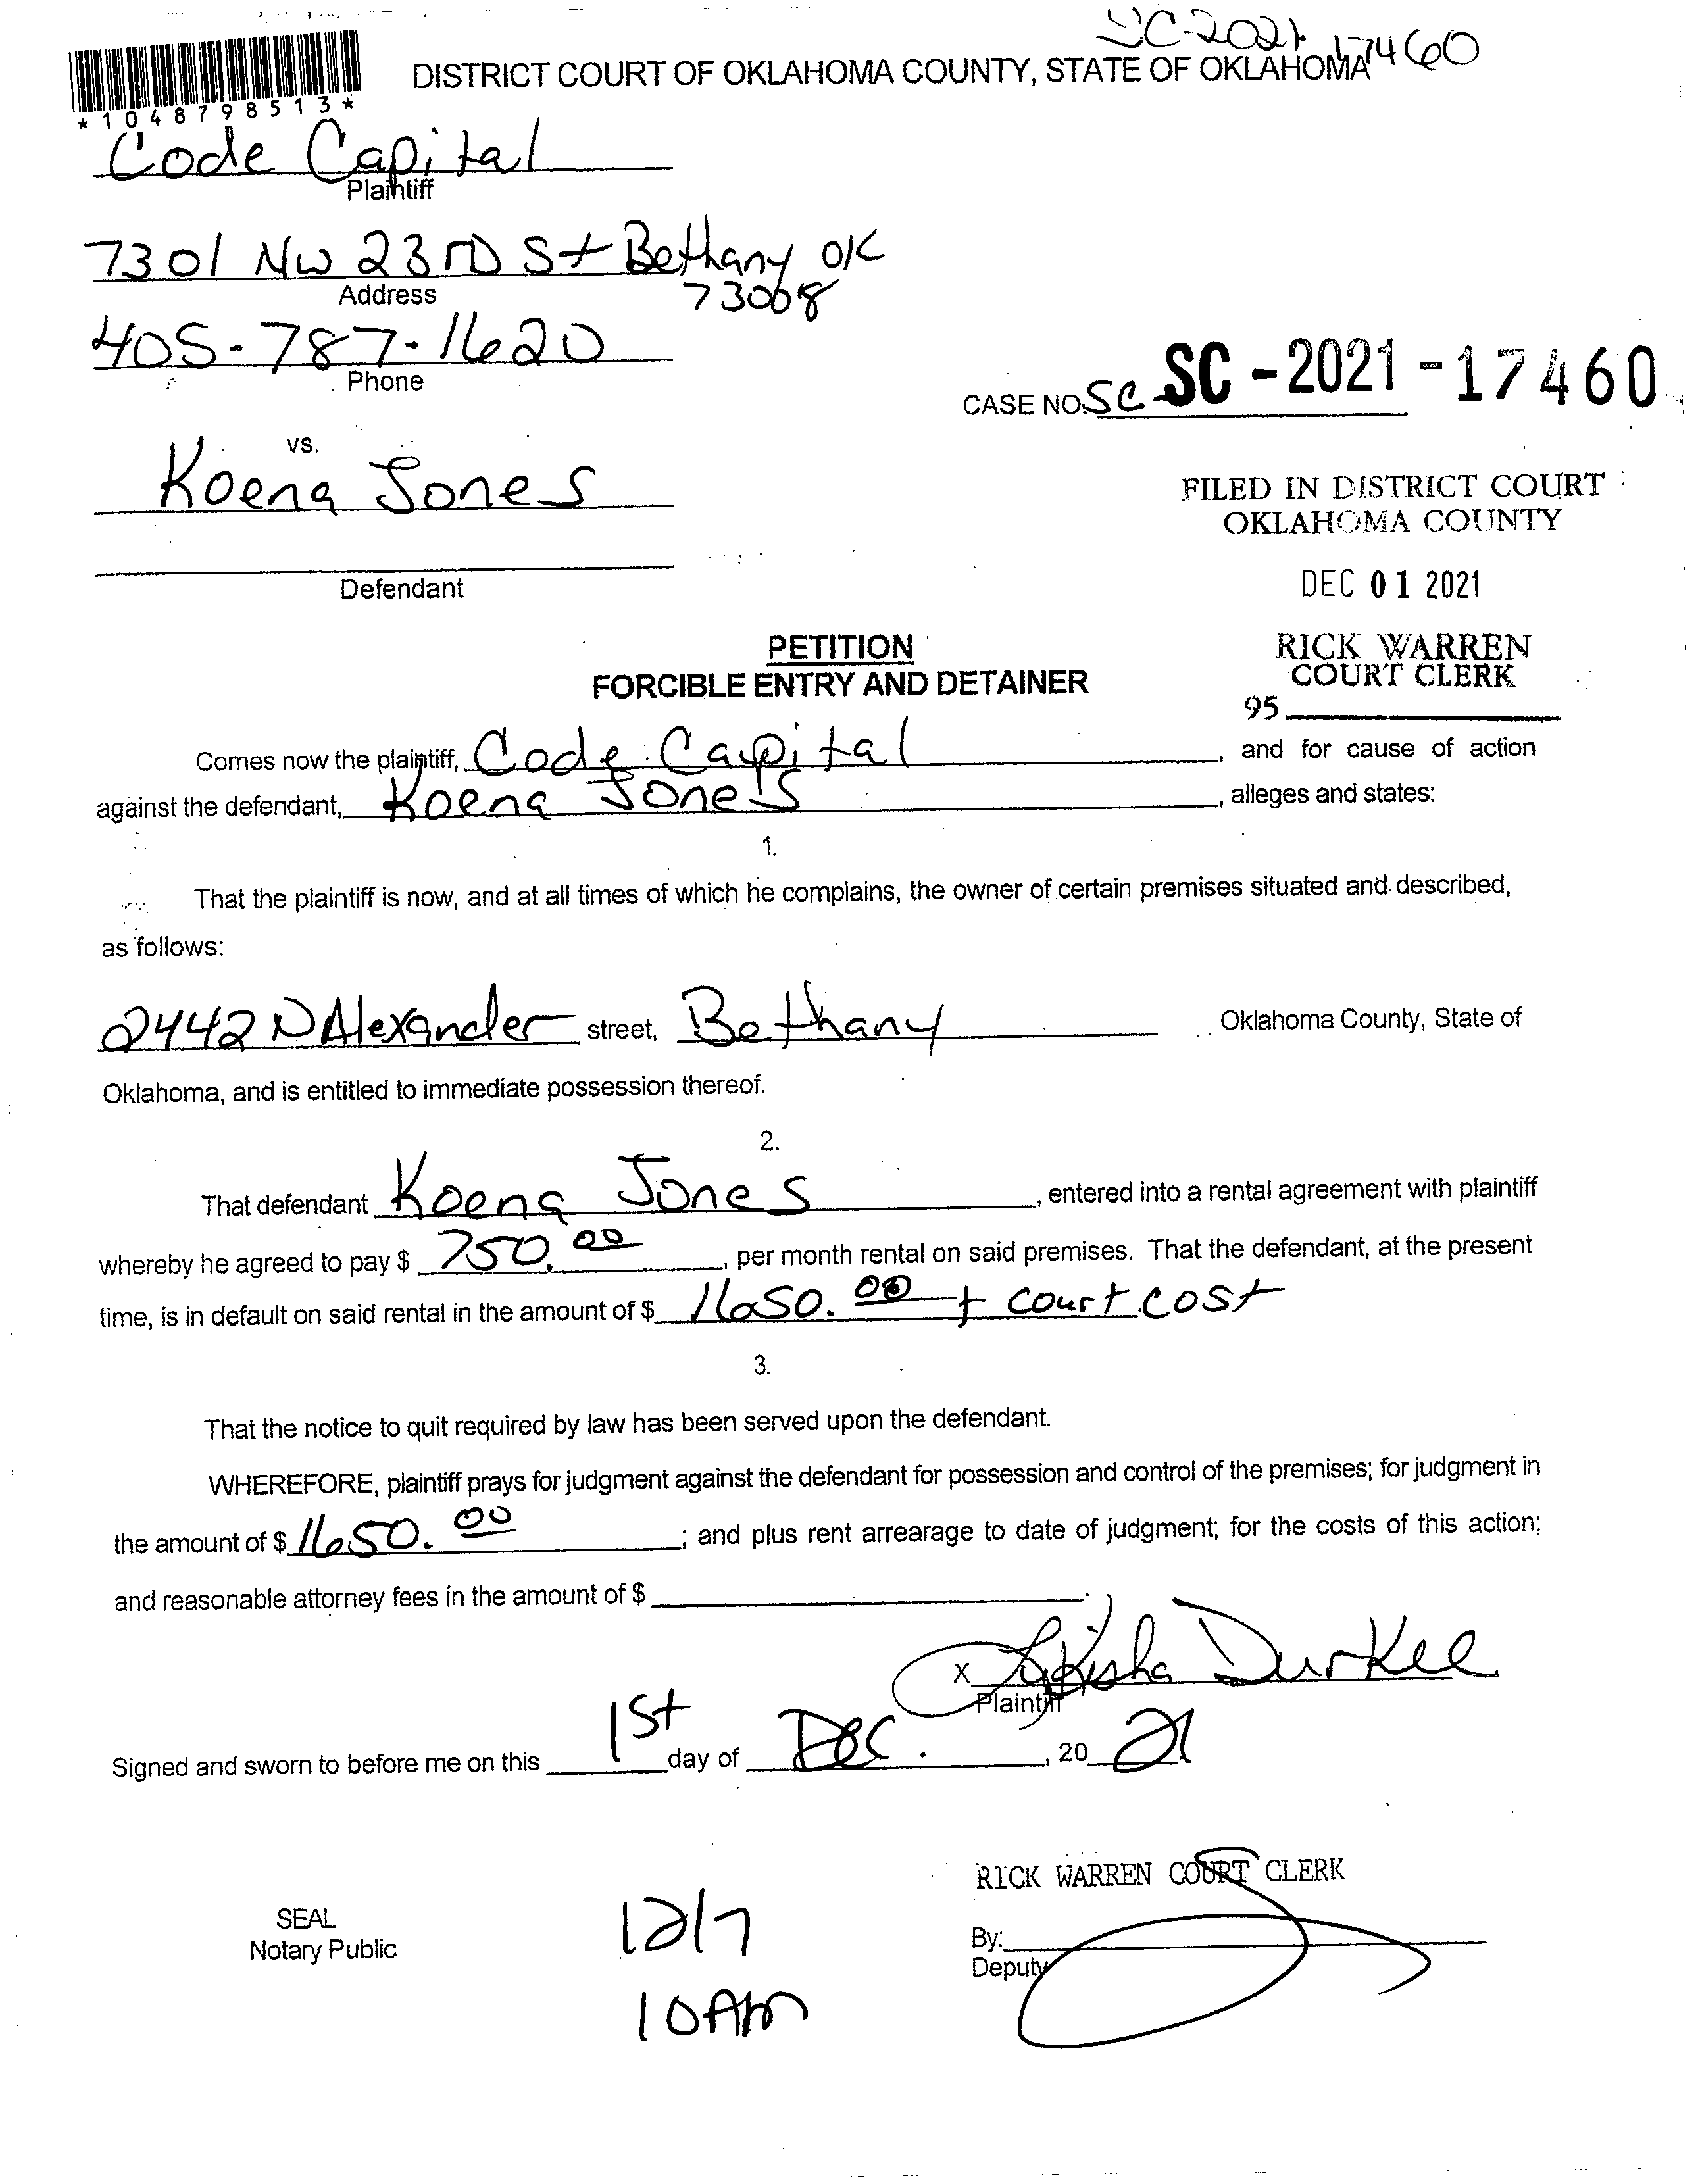 SC-2021-17460
DISTRICT COURT OF OKLAHOMA COUNTY, STATE OF OKLAHOMA
*1048798513*
Code Capital
Plaintiff
7301 NW 23RD St Bethany OK
Address 73008
405-787-1620
Phone
CASE NO. SC- SC-2021-17460
vs.
Koena Jones
FILED IN DISTRICT COURT
OKLAHOMA COUNTY
Defendant
DEC 01 2021
PETITION
FORCIBLE ENTRY AND DETAINER
RICK WARREN
COURT CLERK
95
Comes now the plaintiff, Code Capital, and for cause of action
against the defendant, Koena Jones, alleges and states:
1.
That the plaintiff is now, and at all times of which he complains, the owner of certain premises situated and described,
as follows:
2442 N Alexander street, Bethany Oklahoma County, State of
Oklahoma, and is entitled to immediate possession thereof.
2.
That defendant Koena Jones, entered into a rental agreement with plaintiff
whereby he agreed to pay $ 750.00, per month rental on said premises. That the defendant, at the present
time, is in default on said rental in the amount of $ 1650.00 + court cost
3.
That the notice to quit required by law has been served upon the defendant.
WHEREFORE, plaintiff prays for judgment against the defendant for possession and control of the premises; for judgment in
the amount of $ 1650.00; and plus rent arrearage to date of judgment; for the costs of this action;
and reasonable attorney fees in the amount of $
X LaKisha Durkee
Plaintiff
Signed and sworn to before me on this 1st day of Dec., 20 21
RICK WARREN COURT CLERK
SEAL
Notary Public
12/7
By:
Deputy
10AM